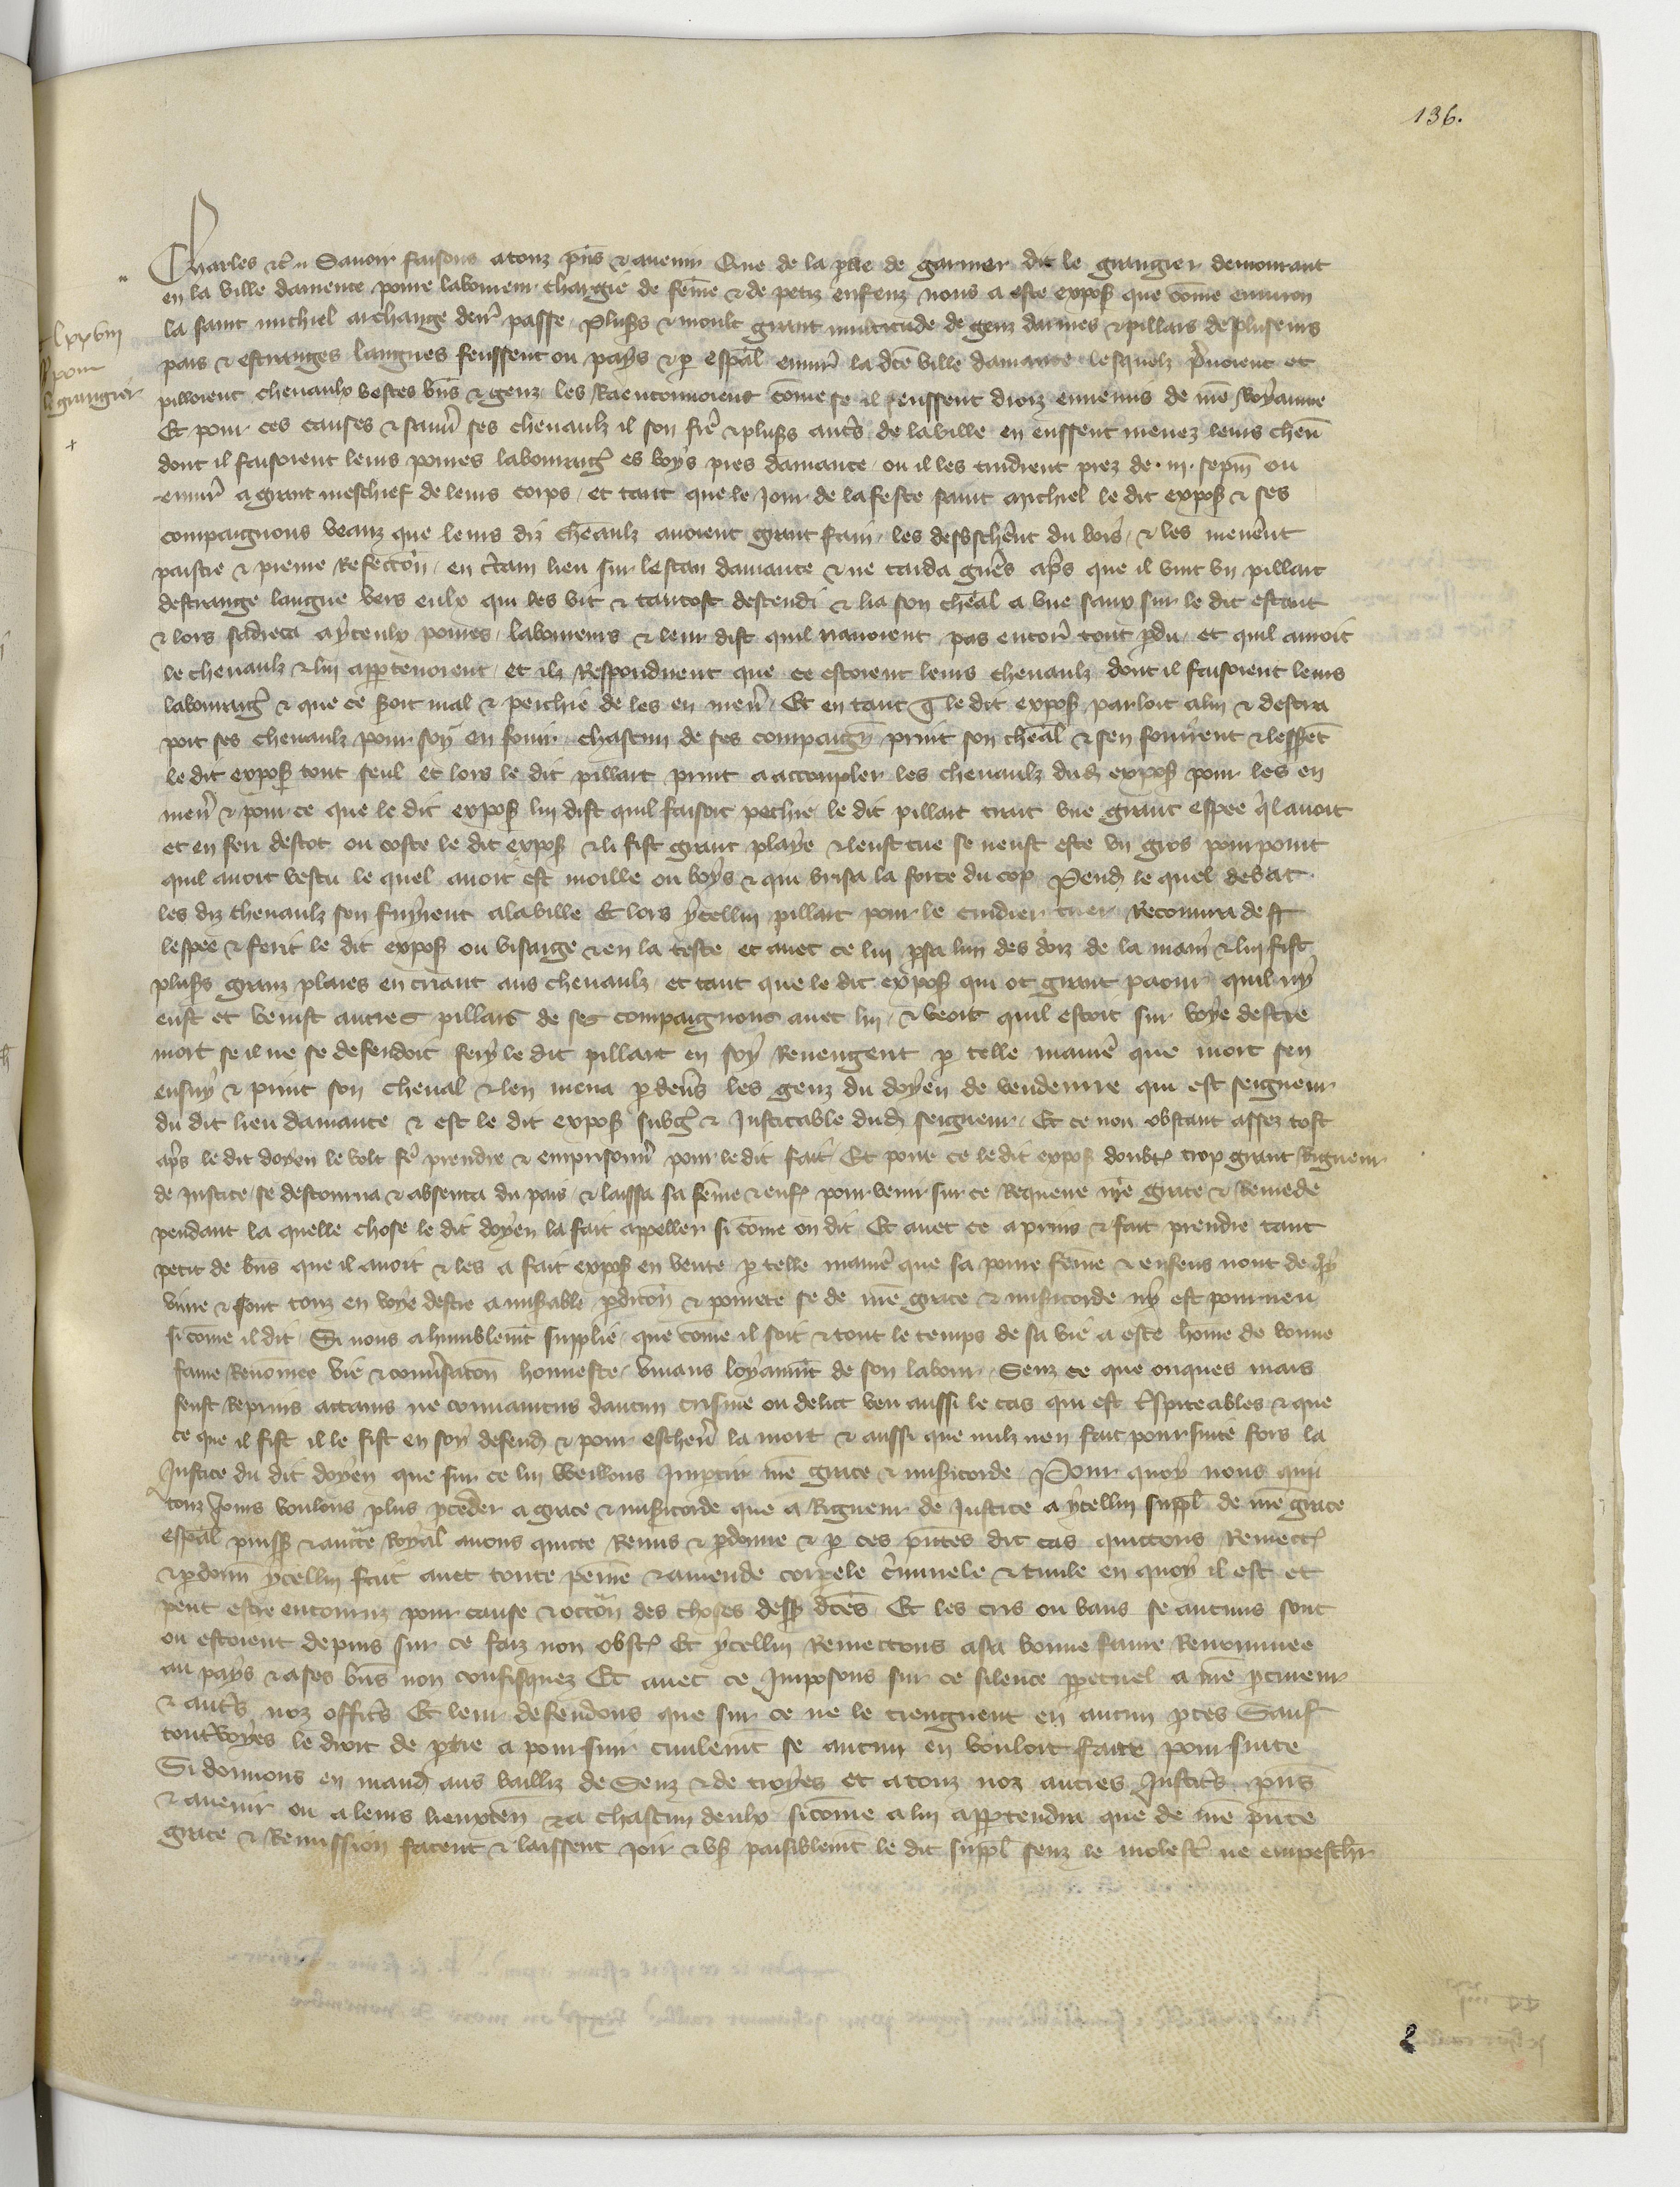 136.
Charles etc. Savoir faisons a touz pñs & avenir Que de la ptie de garnier dit le grangier demourant
en la ville damence povre laboureur chargie de feme & de petiz enfenz nous a este expose que cõme environ
la saint michiel archange derr passe pluss & moult grant multitude de genz darmes & pillars de pluseurs
pais & estranges langues feussent ou pays & p espal envir la dce ville damance lesquelx prenoient et
pilloient chevaulx bestes bñs & genz les Raenconnoient cõme se il feussent droiz ennemis de nre Royaume
Et pour ces causes & sauver ses chevaulz il son frē & pluss autrs de la ville en eussent menez leurs chev
dont il faisoient leurs povres labouraigs es boys pres damance ou il les tindrent prez de .iii. sepm ou
envir a grant meschief de leurs corps et tant que le jour de la feste saint michiel le dit expos & ses
compaignons veanz que leurs diz chevaulx avoient grant fain les du bois & les menerent
paistre & prenre Refeccon en ctain lieu sur lestan damance & ne tarda gueres aps que il vint un pillart
destrange langue vers eulx qui les vit & tantost descendi & lia son cheval a une saux sur le dit estanc
& lors sadreca a yceulx povres laboureurs & leur dist quil navoient pas encor tout pdu et quil avoit
le chevaulz & lui appartenoient et ilz Respondirent que ce estoient leurs chevaulz dont il faisoient leurs
labouraigs & que ce soit mal & pechie de les en mener Et en tant q le dit expos parloit a lui & destra
poit ses chevaulz pour soy en fouir chascun de ses compaign print son cheval & sen fouirent & lesserent
le dit expos tout seul et lors le dit pillart print a accoupler les chevaulz dud expos pour les en
mener & pour ce que le dit expos lui dist quil faisoit pechie le dit pillart trait une grant espee ql avoit
et en feri destoc ou coste le dit expos & li fist grant playe & leust tue se neust este un gros pourpoint
quil avoit vestu le quel avoit est moille ou boys & qui brisa la force du cop Pend le quel debat
les diz chevaulz son fuyrent a la ville Et lors ycellui pillart pour le cuidier tuer Recouvra de
lespee & feri le dit expos ou visaige & en la teste et avec ce lui psa lun des doiz de la main & lui fist
pluss granz plaies en criant aus chevaulz et tant que le dit expos qui ot grant paour quil ny
eust et venist autres pillars de ses compaignons avec lui & veoit quil estoit sur voye destre
mort se il ne se defendoit fery le dit pillart en soy Revengent p telle manie que mort sen
ensuy & print son cheval & len mena p devs les genz du doyen de vendeuvre qui est seigneur
du dit lieu damance & est le dit expos subget & Justicable dud seigneur Et ce non obstant assez tost
aps le dit doyen le volt fe prendre & emprisonner pour le dit fait Et pour ce le dit expos doubt trop grant Rigueur
de Justice se destourna & absenta du pais & laissa sa feme & enfs pour venir sur ce Requerre nre grace & Remede
pendant la quelle chose le dit doyen la fait appeller si come on dit Et avec ce a prins & fait prendre tant
petit de bns que il avoit & les a fait expos en vente p telle manie que sa povre feme & enfens nont de quoy
vivre & sont touz en voye destre a misable pdicon & povrete se de nre grace & misicorde ny est pourveu
si come il dit Si nous a humblemt supplie que come il soit & tout le temps de sa vie a este home de bonne
fame Renomee vie & convsacon honneste vivans loyaumt de son labour Senz ce que onques mais
feust Reprins attains ne convaincus daucun crisme ou delict veu aussi le cas qui est & que
ce que il fist il le fist en soy defend & pour eschever la mort & aussi que nulz nen fait poursuite fors la
Justice du dit doyen que sur ce lui Weillons Impartir nre grace & misicorde Pour quoy nous qui
touz Jours voulons plus pceder a grace & misicorde que a Rigueur de Justice a ycellui suppl de nre grace
espeal puiss & aucte Royal avons quicte Remis & pdonne & p ces pntes dit cas quictons Remects
& pdonn ycellui fait avec toute penne & amende corpele criminele & civile en quoy il est et
peut estre encouruz pour cause & occon des choses dess dces Et les cris ou bans se aucuns sont
ou estoient depuis sur ce faiz non obst Et ycellui Remectons a sa bonne fame Renommee
au pays & a ses bns non confisquez Et avec ce Imposons sur ce silence ppetuel a nre pcureur
& autrs noz offics Et leur defendons que sur ce ne le tiengnent en aucun pces Sauf
toutvoyes le droit de ptie a poursuir civilemt se aucun en vouloit faire poursuite
Si donnons en mand aus bailliz de Senz & de troyes et a touz noz autres Justicrs pns
& avenir ou a leurs lieuxten & a chascun deulx sicome a lui appartendra que de nre pnte
grace & Remission facent & laissent joir & us paisiblemt le dit suppl senz le molester ne empescher
lxxviii
pour
le grangier
+